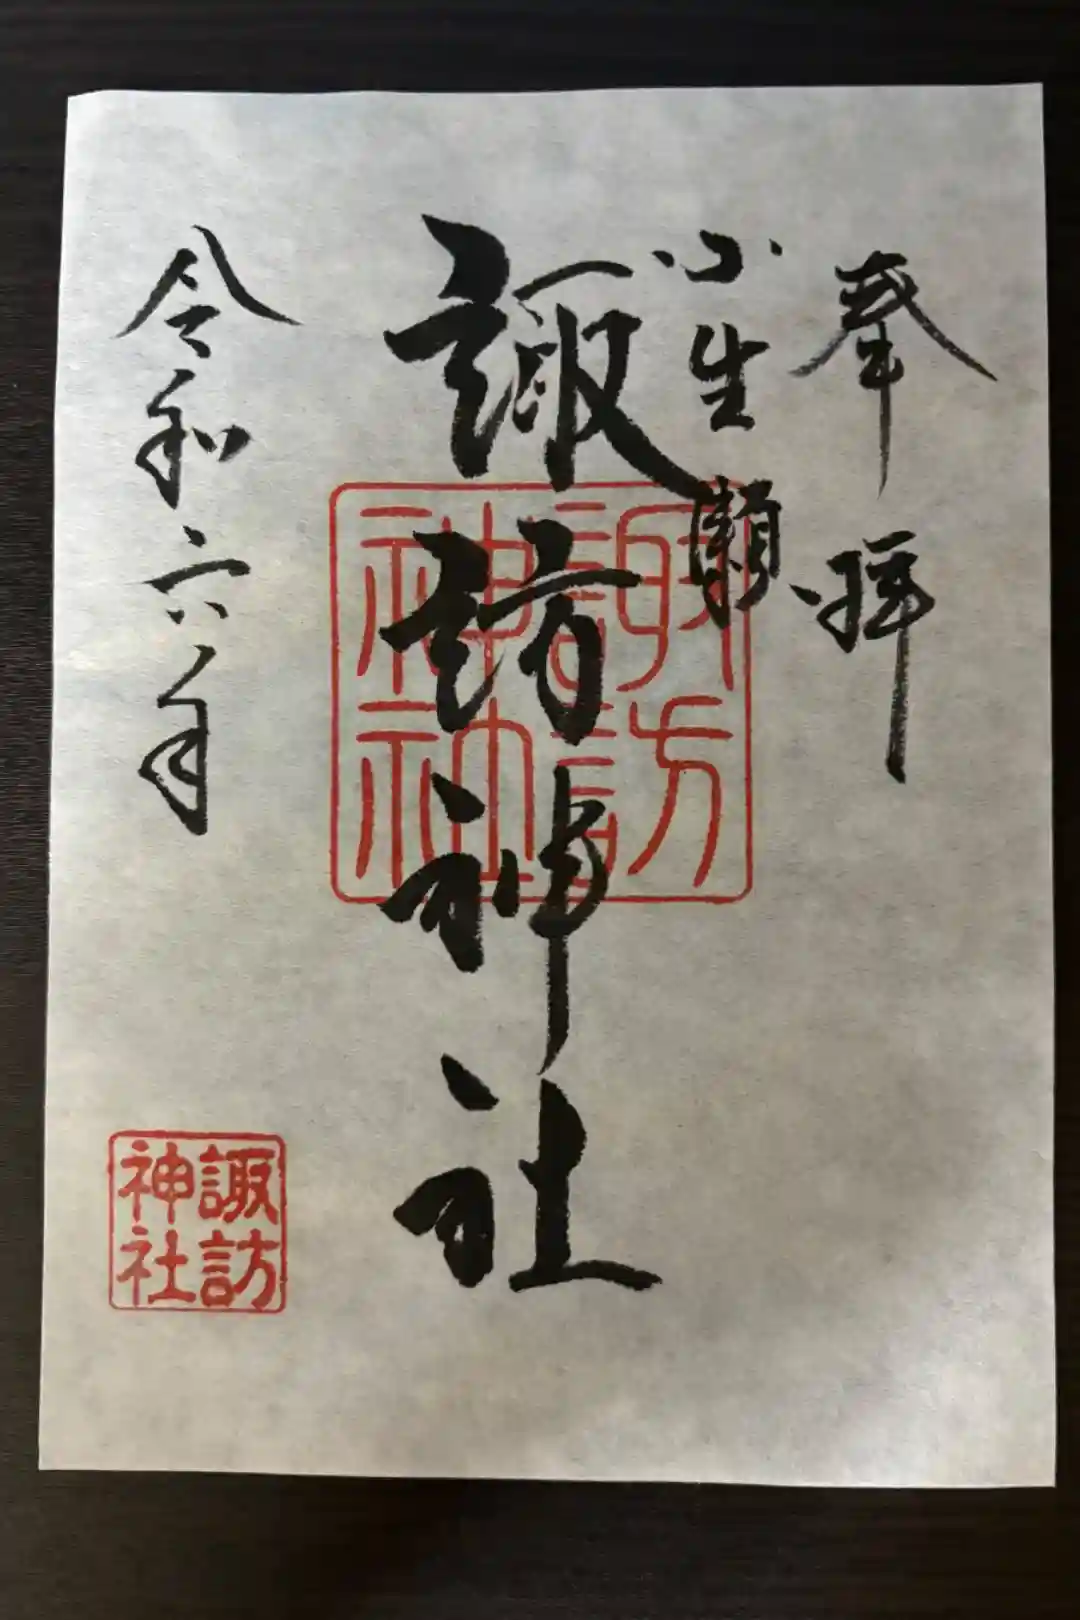 奉拝
小生瀬
諏訪神社
諏訪神社
令和六年
諏訪
神社